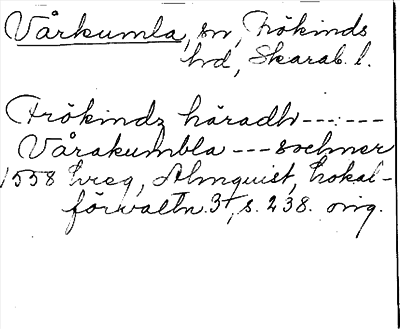 Vårkumla, sn, Frökinds
hd, Skarab. l.
Frökindz häradh ---:---
Våra kumbla --- sochner
1558 Evreg, Almquist, Lokal-
förvaltn. 3, s. 238. orig.